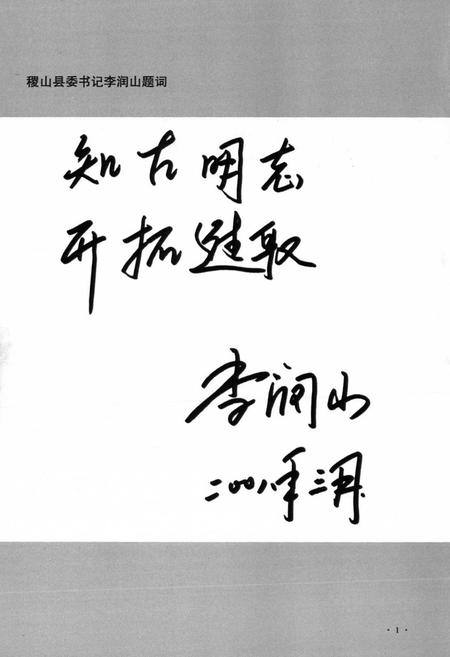 稷山县委书记李润山题词
知古明志
开拓进取
李润山
二〇〇八年三月
· 1 ·